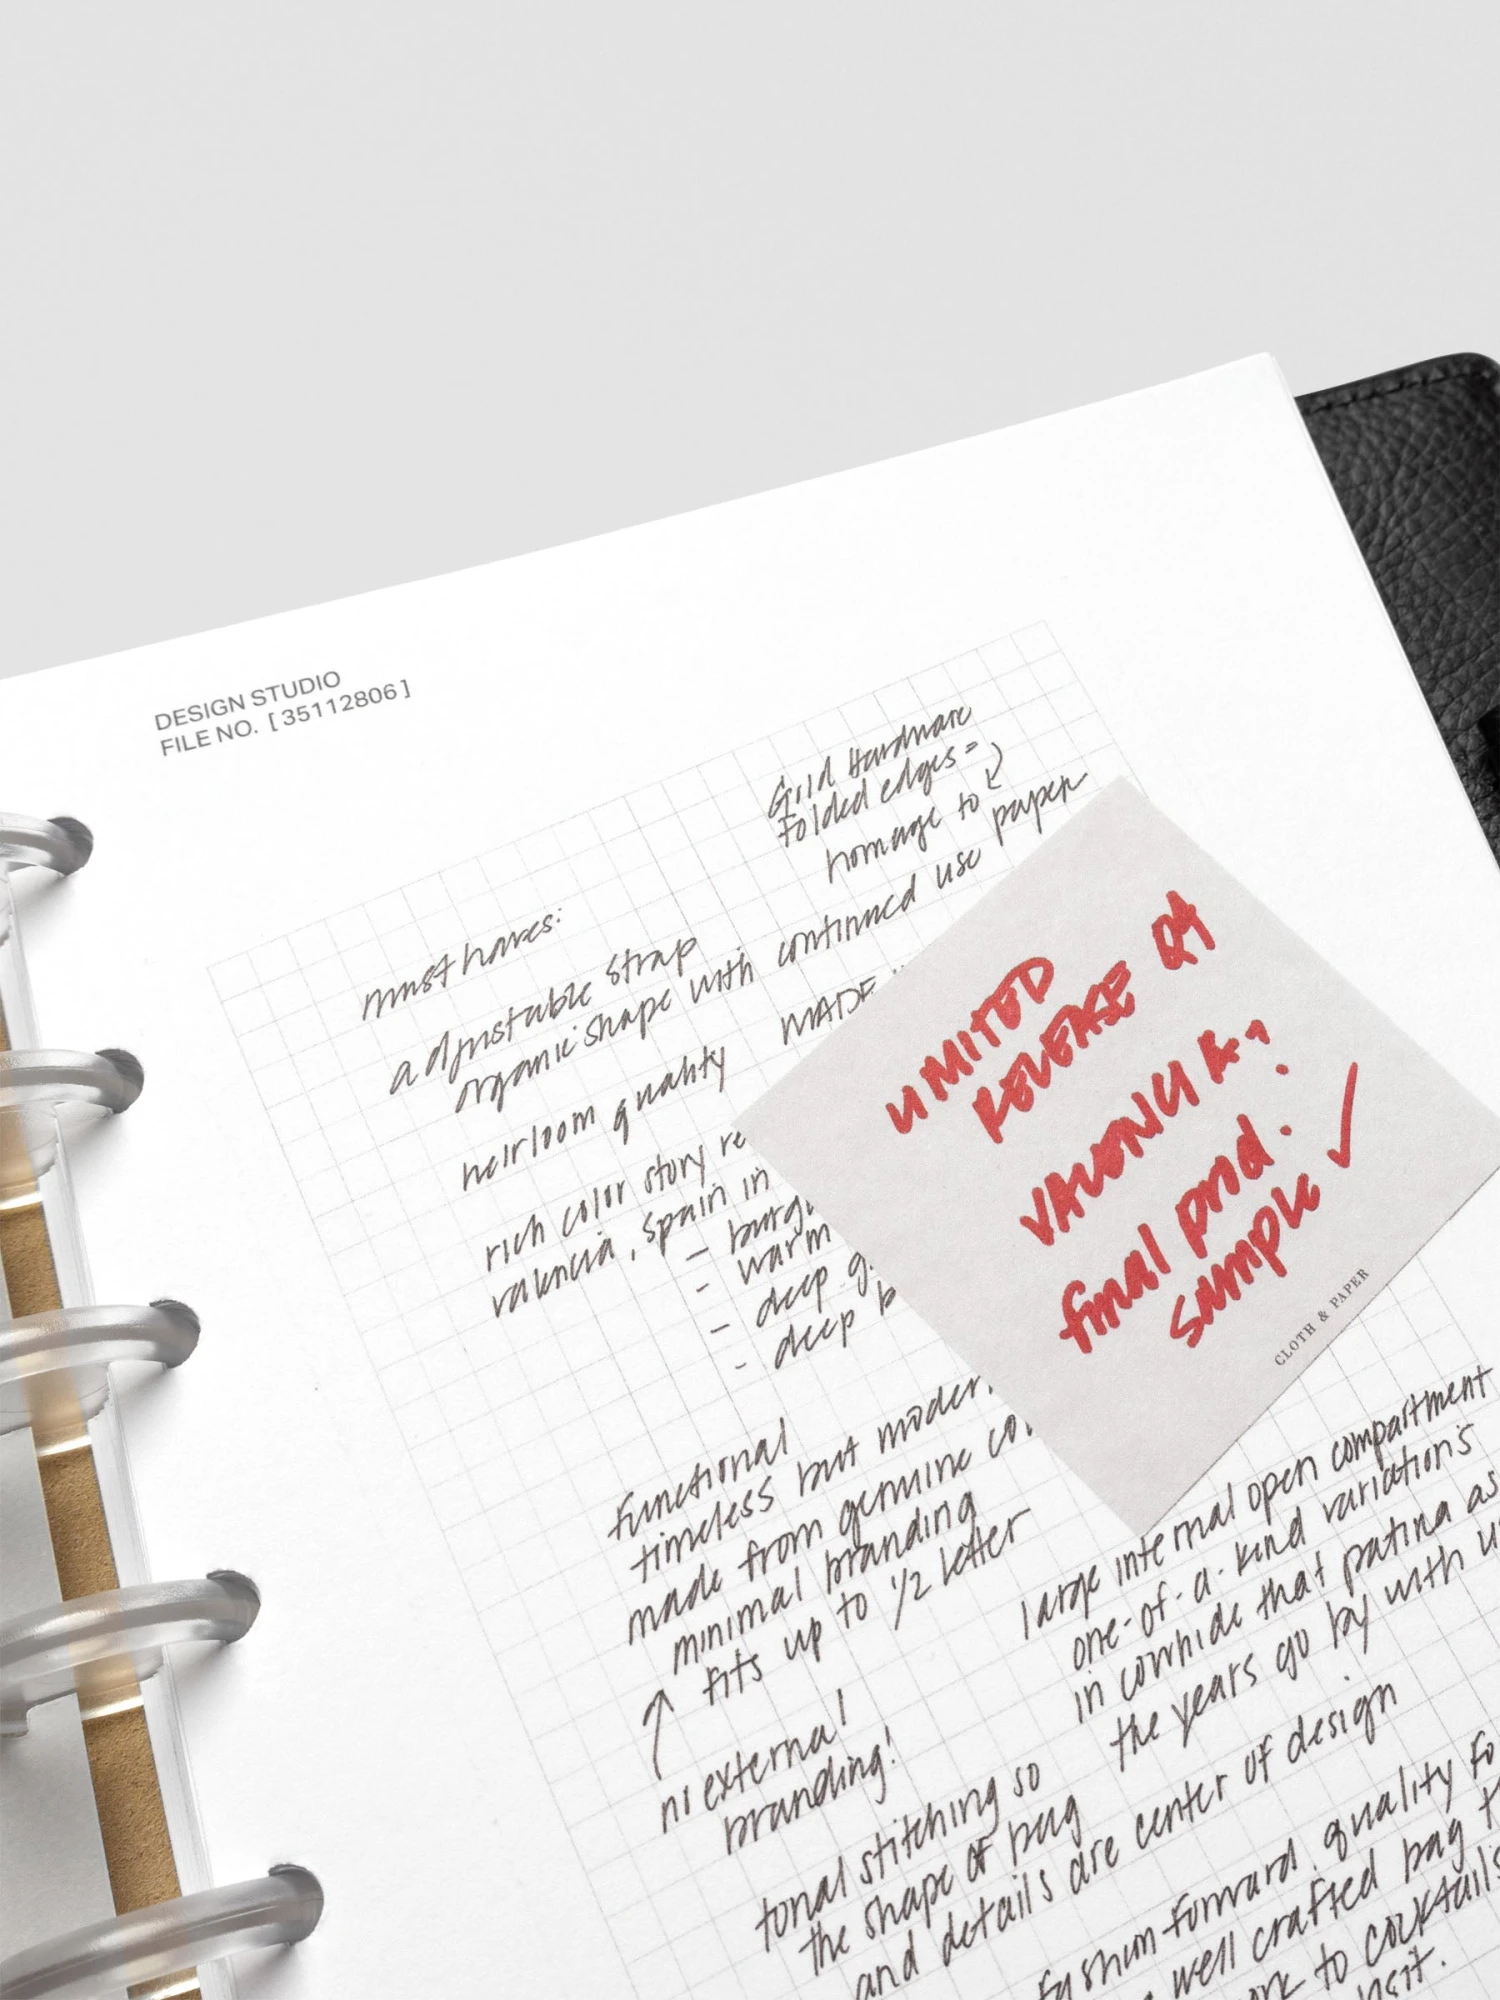 DESIGN STUDIO
FILE NO. [35112806]
Gold Hardware
Folded edges =
homage to
paper
must haves:
adjustable strap
organic shape with continued use
heirloom quality
MADE
rich color story
valencia, spain in
- burg
- warm
- deep
- deep b
functional
timeless but moder
made from genuine co
minimal branding
fits up to 1/2 letter
no external
branding!
LIMITED
RELEASE Q4
final prod.
sample ✓
CLOTH & PAPER
large internal open compartment
one-of-a-kind variations
in cowhide that patina as
the years go by with u
tonal stitching so
the shape of bag
and details are center of design
fashion-forward, quality fo
well crafted bag t
to cocktails